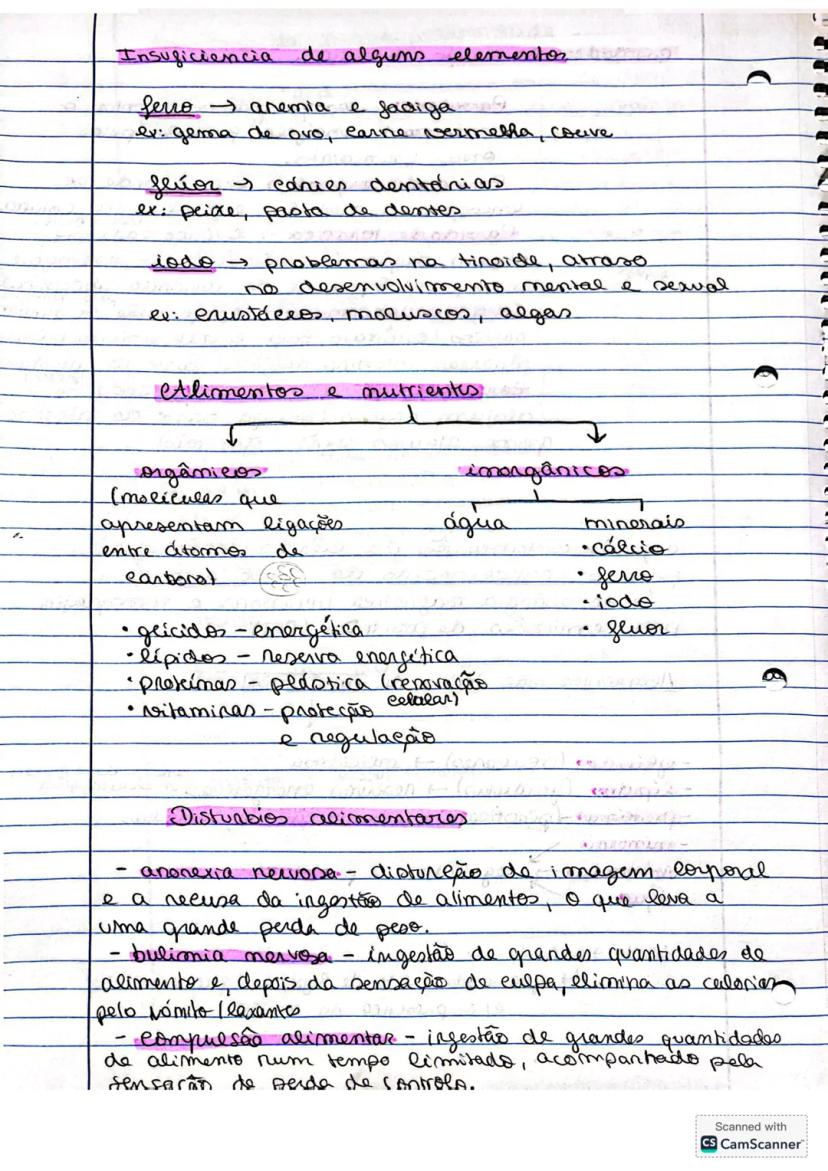 Insuficiencia de alguns elementos
ferro → anemia e fadiga
ex: gema de ovo, carne vermelha, couve
flúor → cáries dentárias
ex: peixe, pasta de dentes
iodo → problemas na tiroide, atraso
no desenvolvimento mental e sexual
ex: crustáceos, moluscos, algas
Alimentos e nutrientes
orgânicos inorgânicos
(moléculas que
apresentam ligações água minerais
entre átomos de • cálcio
carbono) • ferro
• iodo
• glícidos - energética • fluor
• lípidos - reserva energética
• proteínas - plástica (renovação
celular)
• vitaminas - proteção
e regulação
Disturbios alimentares
- anorexia nervosa - distorção de imagem corporal
e a recusa da ingestão de alimentos, o que leva a
uma grande perda de peso.
- bulimia nervosa - ingestão de grandes quantidades de
alimento e, depois da sensação de culpa, elimina as calorias
pelo vómito / laxantes
- compulsão alimentar - ingestão de grandes quantidades
de alimento num tempo limitado, acompanhado pela
sensação de perda de controlo.
Scanned with
CS CamScanner